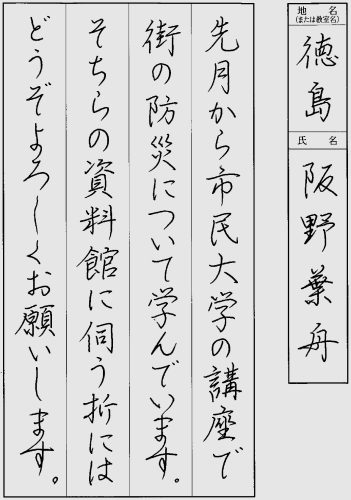 先月から市民大学の講座で
街の防災について学んでいます。
そちらの資料館に伺う折には
どうぞよろしくお願いします。
地名
(または教室名)
徳島
氏名
阪野葉舟